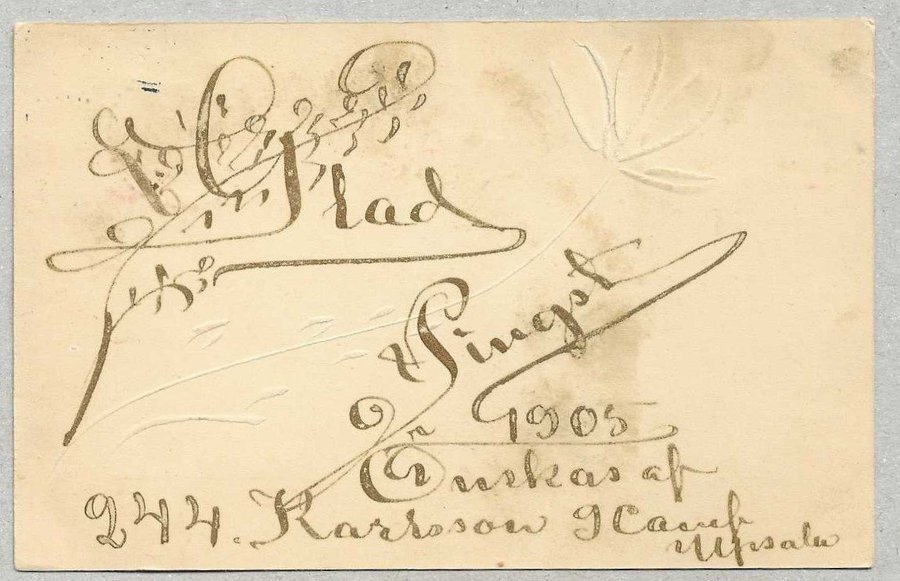 En Glad
Pingst
1905
Önskas af
244. Karlsson 9 Comp
Upsala